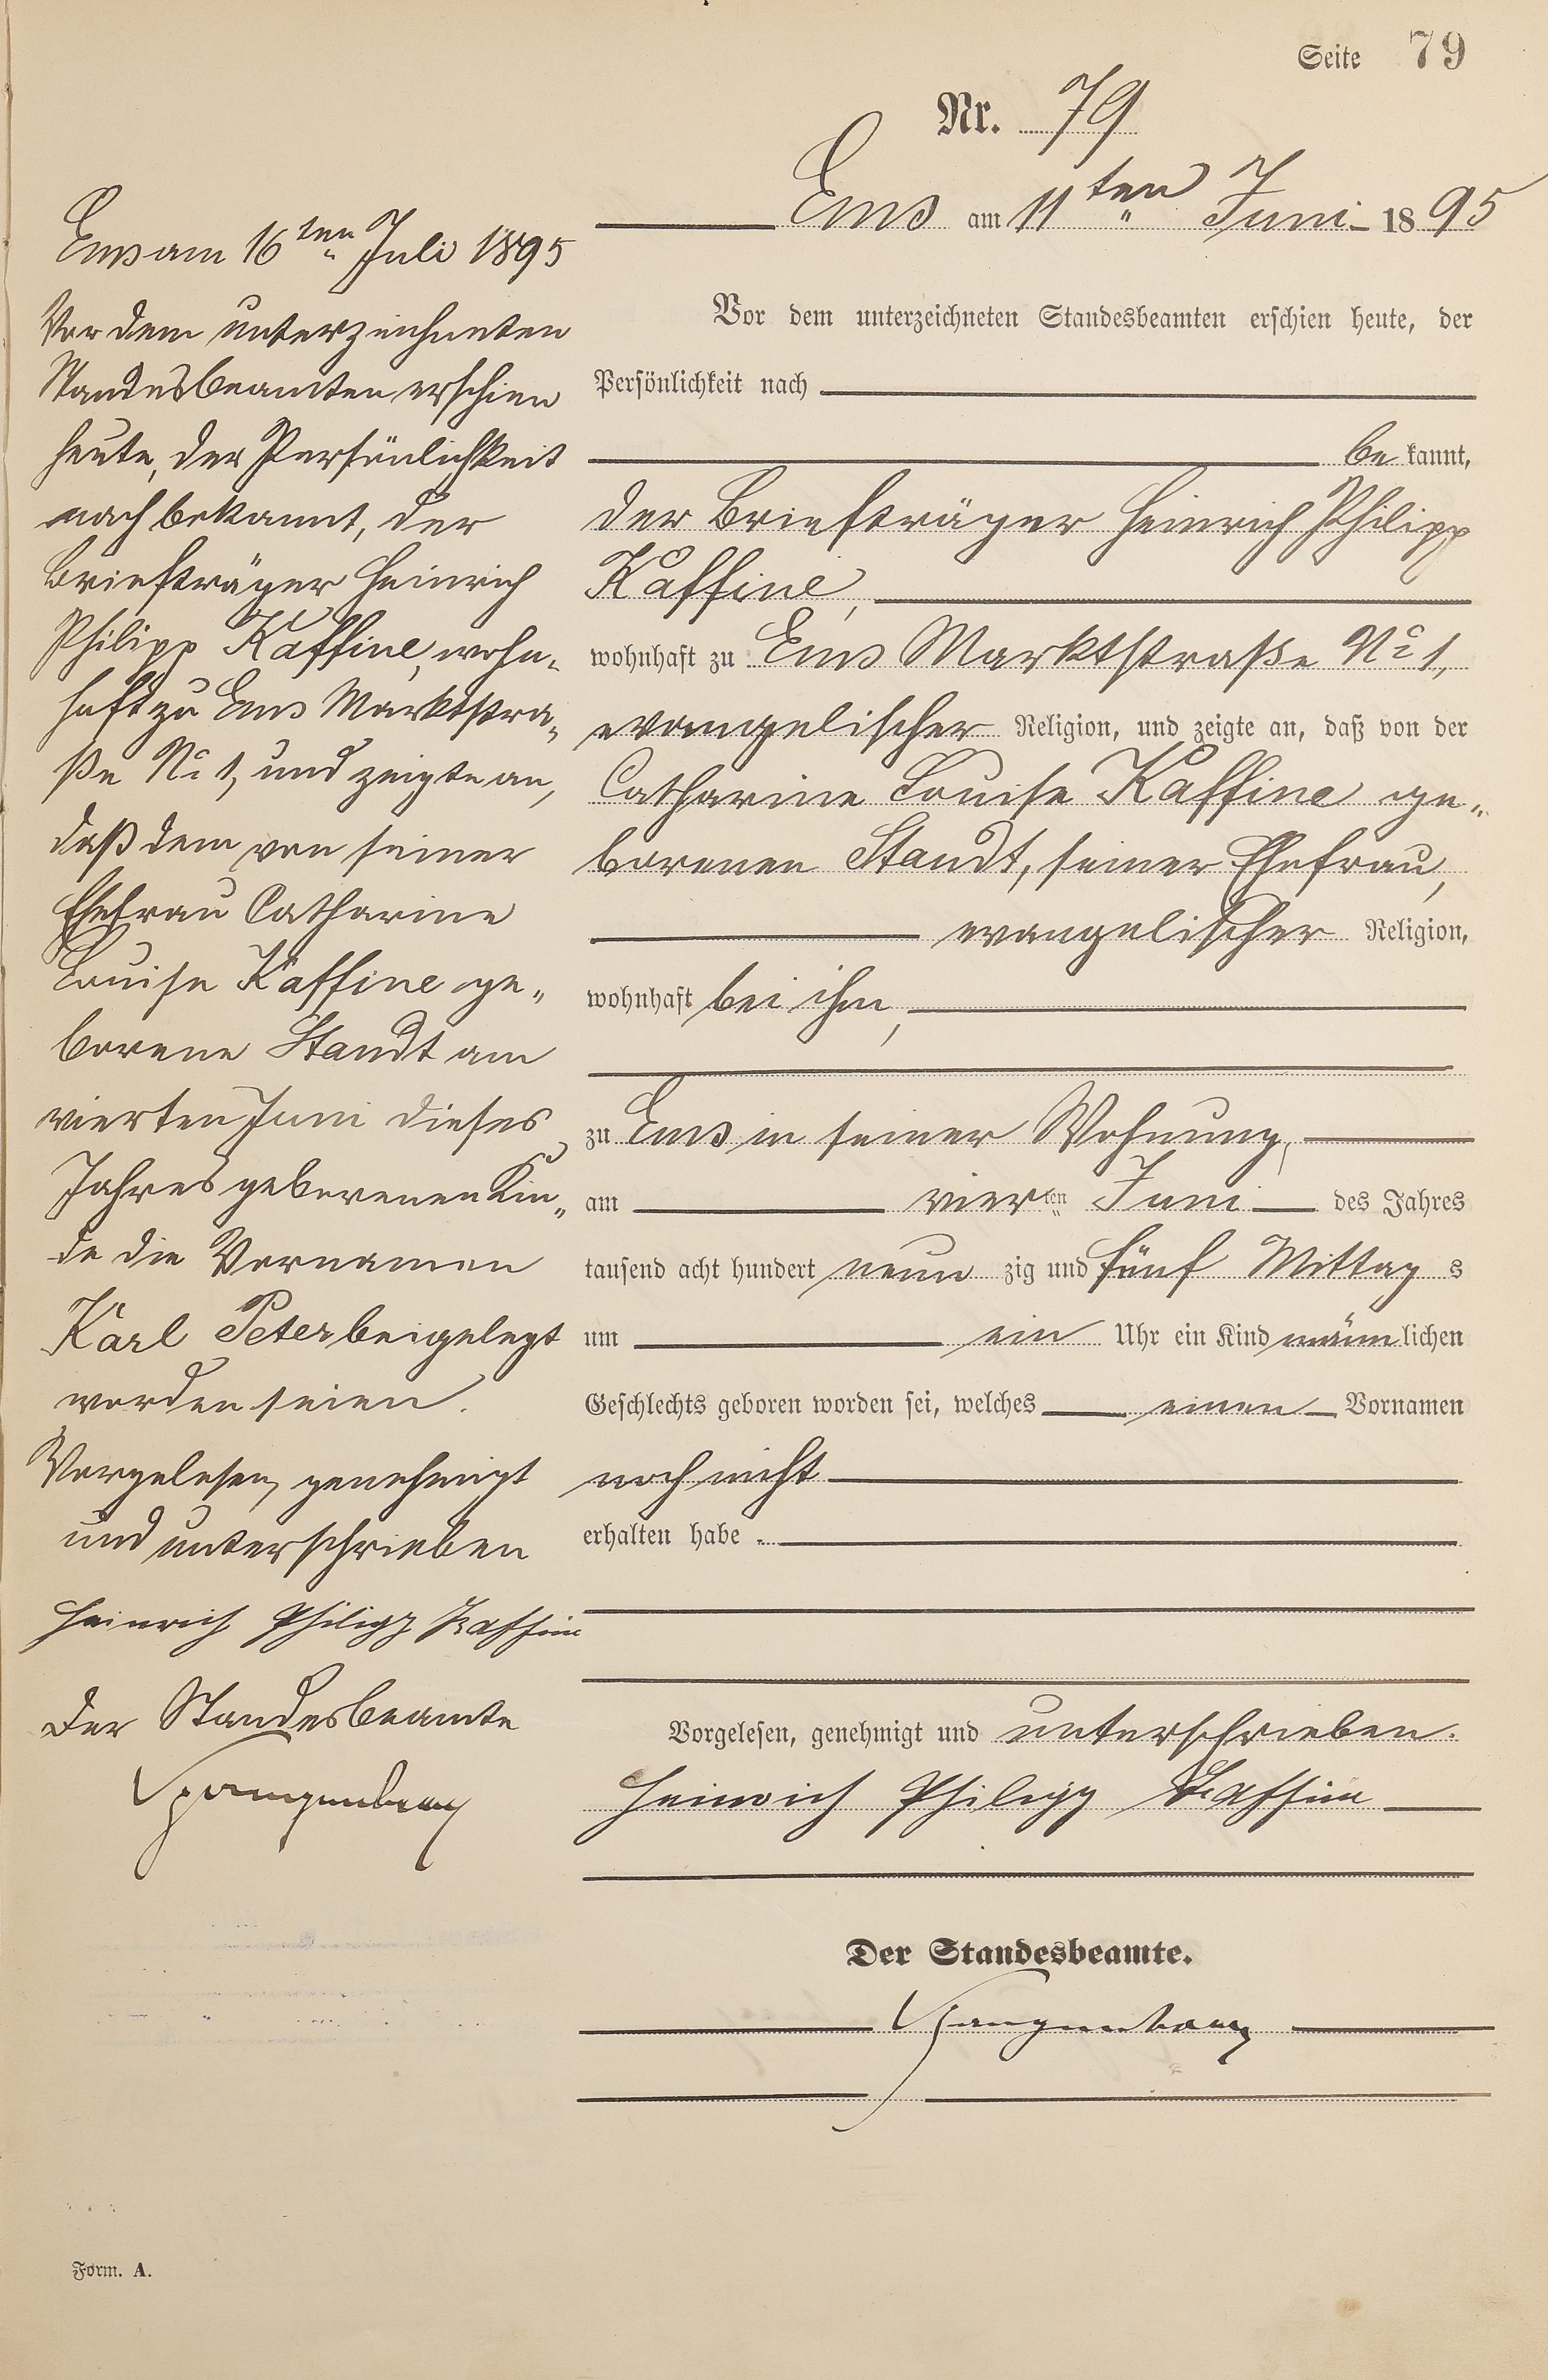 Seite 79
Nr. 79
Ems am 11ten Juni 1895
Vor dem unterzeichneten Standesbeamten erschien heute, der
Persönlichkeit nach
bekannt,
der Briefträger Heinrich Philipp
Kaffine,
wohnhaft zu Ems Marktstraße No 1,
evangelischer Religion, und zeigte an, daß von der
Catharine Louise Kaffine ge-
borenen Staudt, seiner Ehefrau,
evangelischer Religion,
wohnhaft bei ihm,
zu Ems in seiner Wohnung,
am vierten Juni des Jahres
tausend acht hundert neunzig und fünf Mittags
um ein Uhr ein Kind männlichen
Geschlechts geboren worden sei, welches einen Vornamen
noch nicht
erhalten habe.
Vorgelesen, genehmigt und unterschrieben.
Heinrich Philipp Kaffine
Der Standesbeamte.
Spangenberg
Ems am 16ten Juli 1895
Vor dem unterzeichneten
Standesbeamten erschien
heute, der Persönlichkeit
nach bekannt, der
Briefträger Heinrich
Philipp Kaffine, wohn-
haft zu Ems Marktstra-
ße No 1, und zeigte an,
daß dem von seiner
Ehefrau Catharine
Louise Kaffine ge-
borene Staudt am
vierten Juni dieses
Jahres geborenen Kin-
de die Vornamen
Karl Peter beigelegt
worden seien.
Vorgelesen, genehmigt
und unterschrieben
Heinrich Philipp Kaffine
Der Standesbeamte
Spangenberg
Form. A.